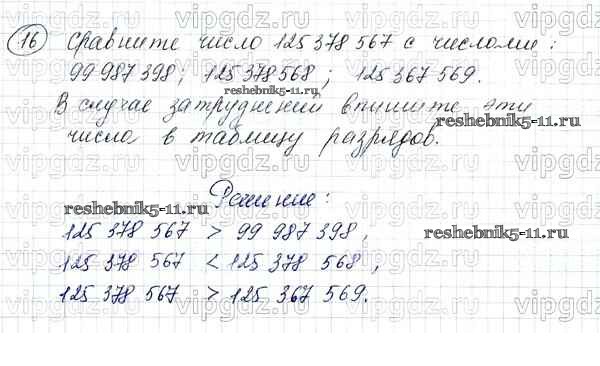 16 Сравните число 125 378 567 с числами:
99 987 398; 125 378 568; 125 367 569.
В случае затруднений впишите эти
числа в таблицу разрядов.
Решение:
125 378 567 > 99 987 398,
125 378 567 < 125 378 568,
125 378 567 > 125 367 569.
vipgdz.ru
reshebnik5-11.ru
reshebnik5-11.ru
reshebnik5-11.ru
reshebnik5-11.ru